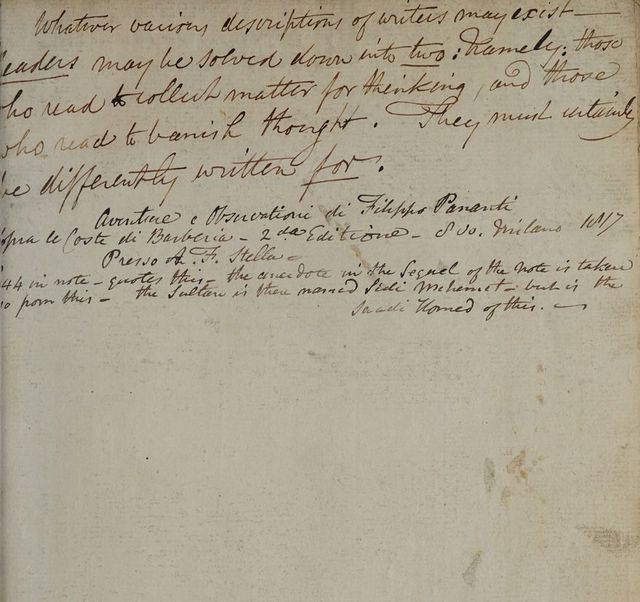 Whatever various descriptions of writers may exist —
Readers may be solved down into two: Namely; those
who read to collect matter for thinking, and those
who read to banish thought. They must certainly
be differently written for.
Aventure e Observationi di Filippo Pananti
sopra le Coste di Barberia — 2da Editione — 8vo. Milano 1817
Presso A. F. Stella —
44 in note — quotes this — the anecdote in the Sequel of the note is taken
from this — the Sultan is then named Sidi Mehemet — but is the
Saadi Hamed of this. —